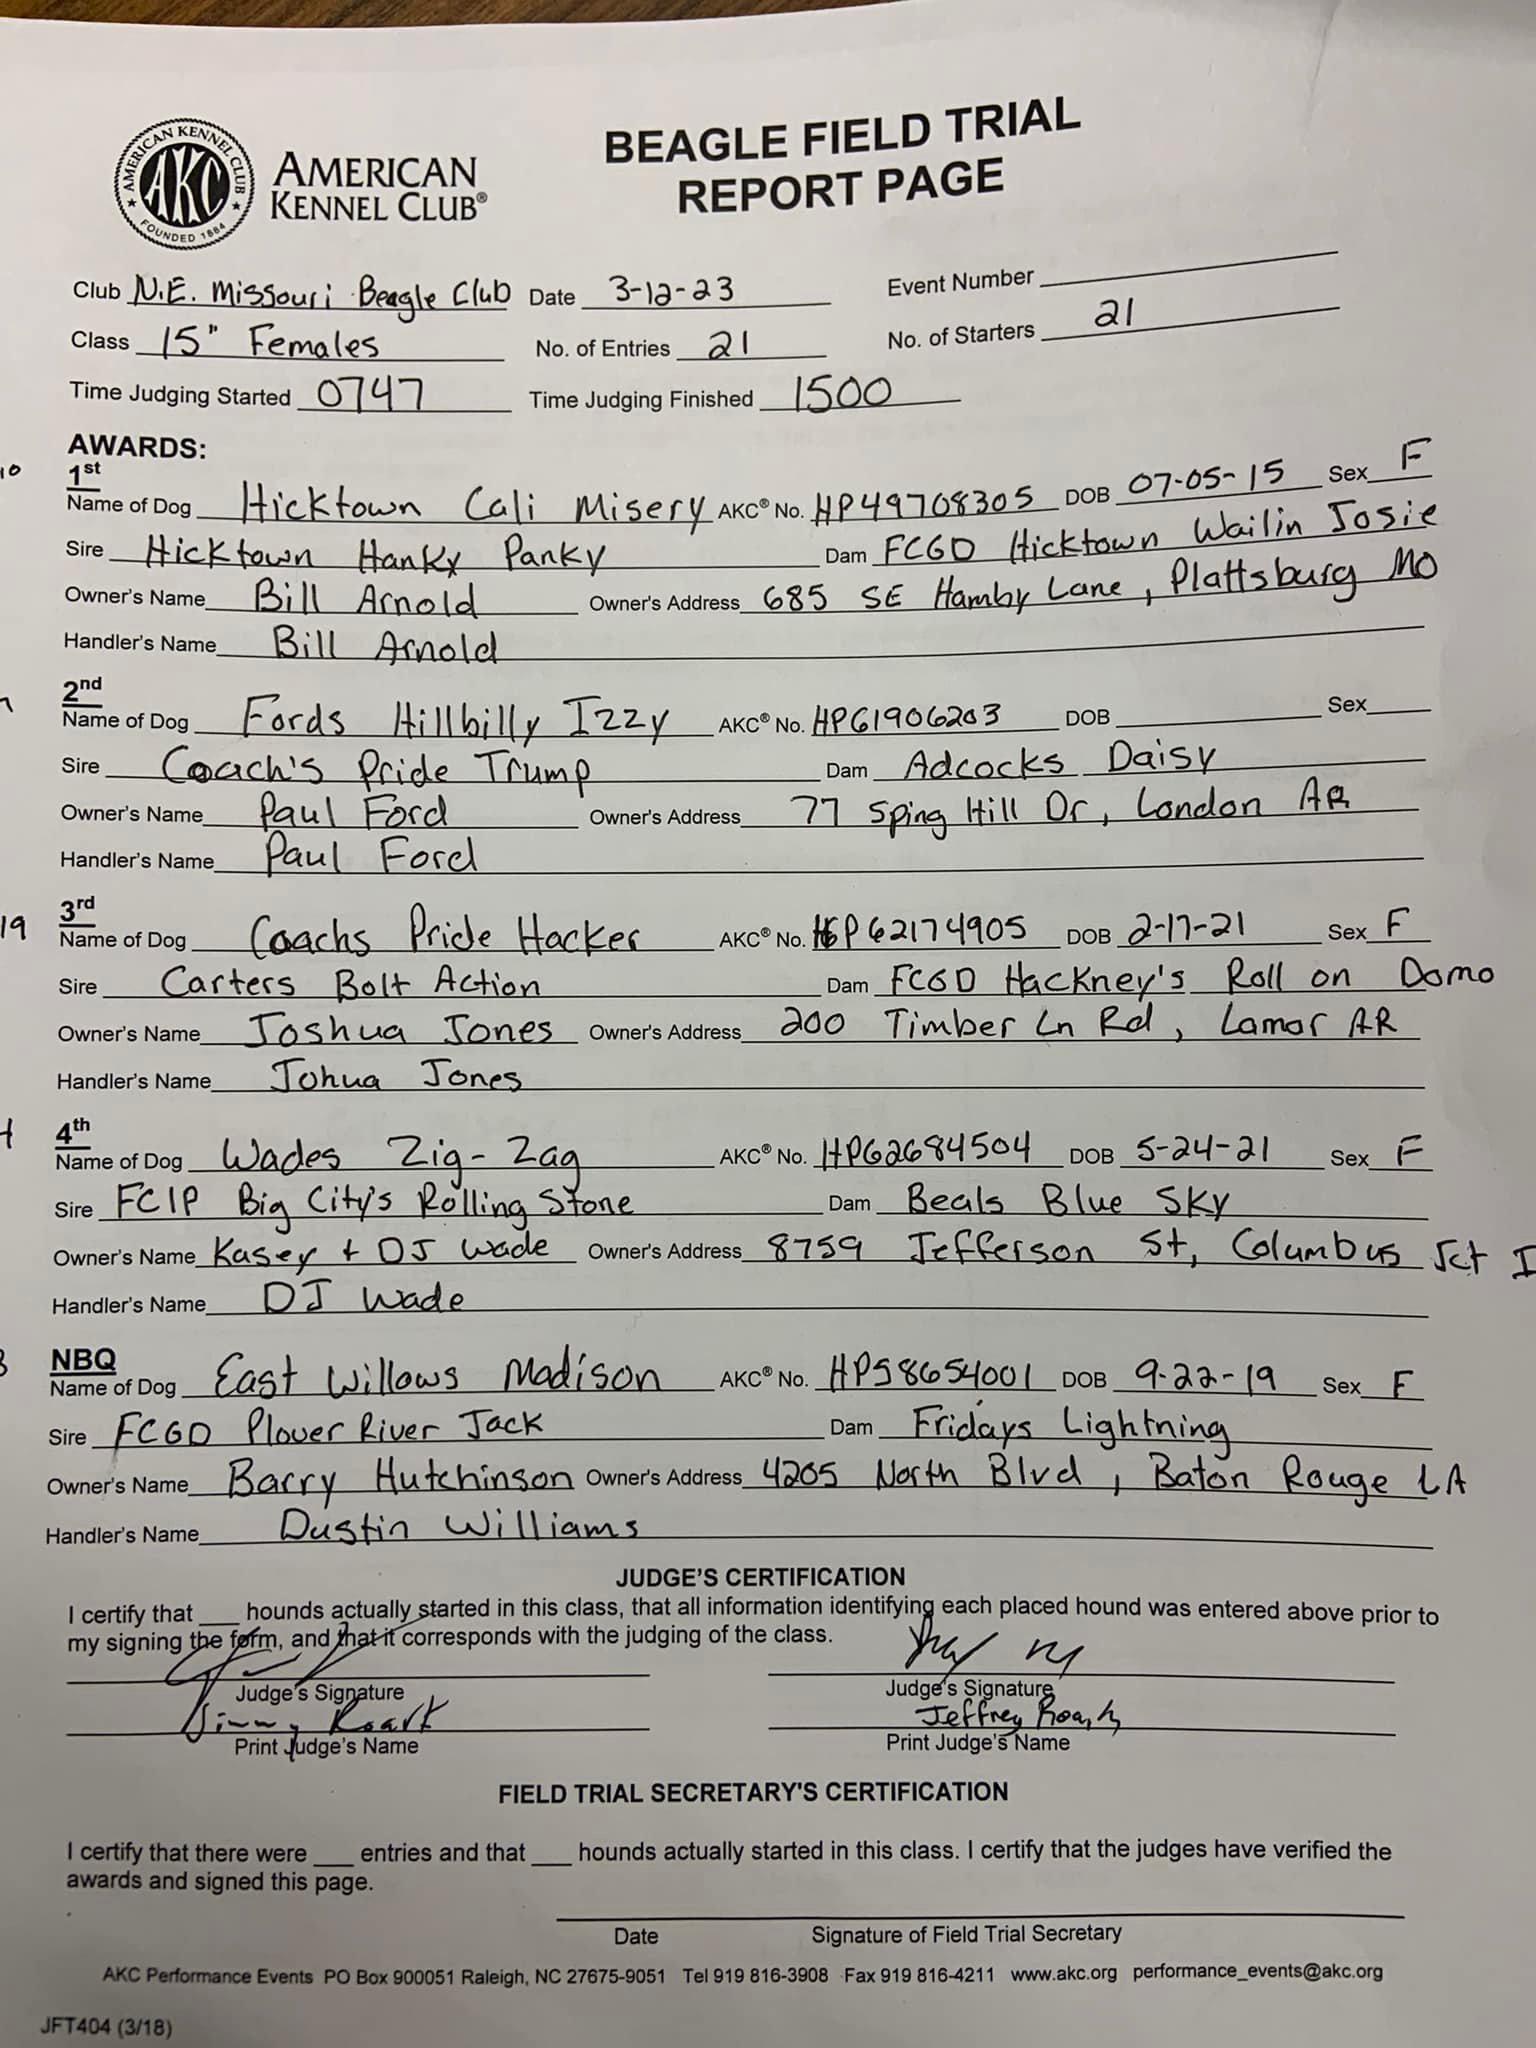 AMERICAN KENNEL CLUB
AKC
FOUNDED 1884
AMERICAN
KENNEL CLUB®
BEAGLE FIELD TRIAL
REPORT PAGE
Club N.E. Missouri Beagle Club Date 3-12-23 Event Number
Class 15" Females No. of Entries 21 No. of Starters 21
Time Judging Started 0747 Time Judging Finished 1500
AWARDS:
1st
Name of Dog Hicktown Cali Misery AKC® No. HP49708305 DOB 07-05-15 Sex F
Sire Hicktown Hanky Panky Dam FCGD Hicktown Wailin Josie
Owner's Name Bill Arnold Owner's Address 685 SE Hamby Lane, Plattsburg MO
Handler's Name Bill Arnold
2nd
Name of Dog Fords Hillbilly Izzy AKC® No. HP61906203 DOB Sex
Sire Coach's Pride Trump Dam Adcocks Daisy
Owner's Name Paul Ford Owner's Address 77 Sping Hill Dr, London AR
Handler's Name Paul Ford
19
3rd
Name of Dog Coachs Pride Hacker AKC® No. HP62174905 DOB 2-17-21 Sex F
Sire Carters Bolt Action Dam FCGD Hackney's Roll on Domo
Owner's Name Joshua Jones Owner's Address 200 Timber Ln Rd, Lamar AR
Handler's Name Johua Jones
4th
Name of Dog Wades Zig-Zag AKC® No. HP62684504 DOB 5-24-21 Sex F
Sire FCIP Big City's Rolling Stone Dam Beals Blue Sky
Owner's Name Kasey + DJ Wade Owner's Address 8759 Jefferson St, Columbus Jct I
Handler's Name DJ Wade
NBQ
Name of Dog East Willows Madison AKC® No. HP58654001 DOB 9-22-19 Sex F
Sire FCGD Plover River Jack Dam Fridays Lightning
Owner's Name Barry Hutchinson Owner's Address 4205 North Blvd, Baton Rouge LA
Handler's Name Dustin Williams
JUDGE'S CERTIFICATION
I certify that ___ hounds actually started in this class, that all information identifying each placed hound was entered above prior to
my signing the form, and that it corresponds with the judging of the class.
Judge's Signature Judge's Signature
Jimmy Roark Jeffrey
Print Judge's Name Print Judge's Name
FIELD TRIAL SECRETARY'S CERTIFICATION
I certify that there were ___ entries and that ___ hounds actually started in this class. I certify that the judges have verified the
awards and signed this page.
Date Signature of Field Trial Secretary
AKC Performance Events PO Box 900051 Raleigh, NC 27675-9051 Tel 919 816-3908 Fax 919 816-4211 www.akc.org performance_events@akc.org
JFT404 (3/18)